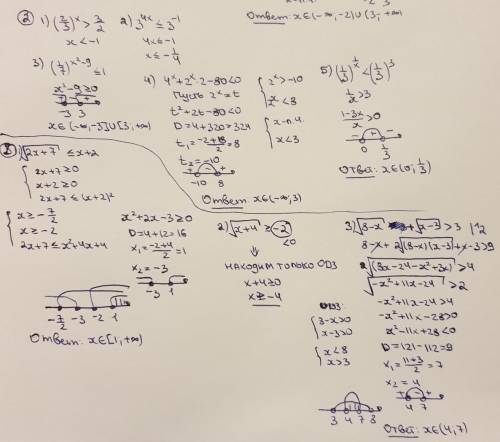 Ответ: x∈(-∞,-2)∪(3;+∞
② 1) (2/3)^x > 3/2
x < -1
2) 3^4x ≤ 3^-1
4x ≤ -1
x ≤ -1/4
3) (1/7)^x²-9 ≤ 1
x²-9 ≥ 0
-3 3
x∈(-∞,-3]∪[3,+∞)
4) 4^x + 2^x · 2 - 80 < 0
Пусть 2^x = t
t² + 2t - 80 < 0
D = 4 + 320 = 324
t₁ = (-2+18)/2 = 8
t₂ = -10
-10 8
{ 2^x > -10
2^x < 8
{ x - п.ч.
x < 3
Ответ: x∈(-∞,3)
5) (1/3)^1/x < (1/3)^3
1/x > 3
(1-3x)/x > 0
- + -
0 1/3
Ответ: x∈(0,1/3)
1) √2x+7 ≤ x+2
{ 2x+7 ≥ 0
x+2 ≥ 0
2x+7 ≤ (x+2)²
{ x ≥ -7/2
x ≥ -2
2x+7 ≤ x²+4x+4
x²+2x-3 ≥ 0
D = 4+12 = 16
x₁ = (-2+4)/2 = 1
x₂ = -3
-3 1
-7/2 -3 -2 1
Ответ: x∈[1,+∞)
2) √x+4 ≥ -2
<0
⇓
находим только ОДЗ
x+4 ≥ 0
x ≥ -4
3) √8-x + √x-3 > 3 |↑2
8-x + 2√(8-x)(x-3) + x-3 > 9
2√(8x-24-x²+3x) > 4
√-x²+11x-24 > 2
-x²+11x-24 > 4
-x²+11x-28 > 0
x²-11x+28 < 0
D = 121-112 = 9
x₁ = (11+3)/2 = 7
x₂ = 4
+ - +
4 7
ОДЗ:
{ 8-x > 0
x-3 > 0
{ x < 8
x > 3
3 4 7 8
Ответ: x∈(4,7)